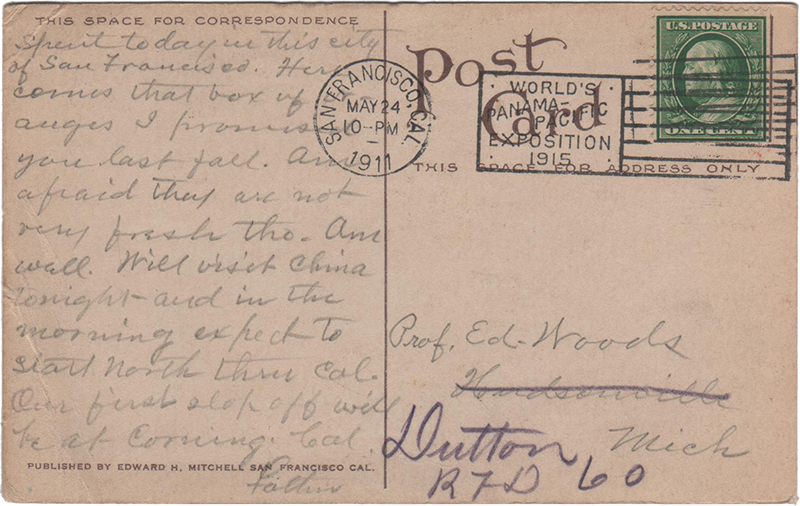 THIS SPACE FOR CORRESPONDENCE
Spent today in this city
of San Francisco. Here
comes that box of
anges I promised
you last fall. Am
afraid they are not
very fresh tho. Am
well. Will visit China
tonight and in the
morning expect to
start North thru Cal.
Our first stop off will
be at Corning. Cal.
PUBLISHED BY EDWARD H. MITCHELL SAN FRANCISCO CAL.
Post
Card
THIS SPACE FOR ADDRESS ONLY
SAN FRANCISCO, CAL.
MAY 24
10-PM
1911
WORLD'S
PANAMA-
PACIFIC
EXPOSITION
1915
U.S. POSTAGE
ONE CENT
Prof. Ed. Woods
Hudsonville
Dutton Mich
RFD 60